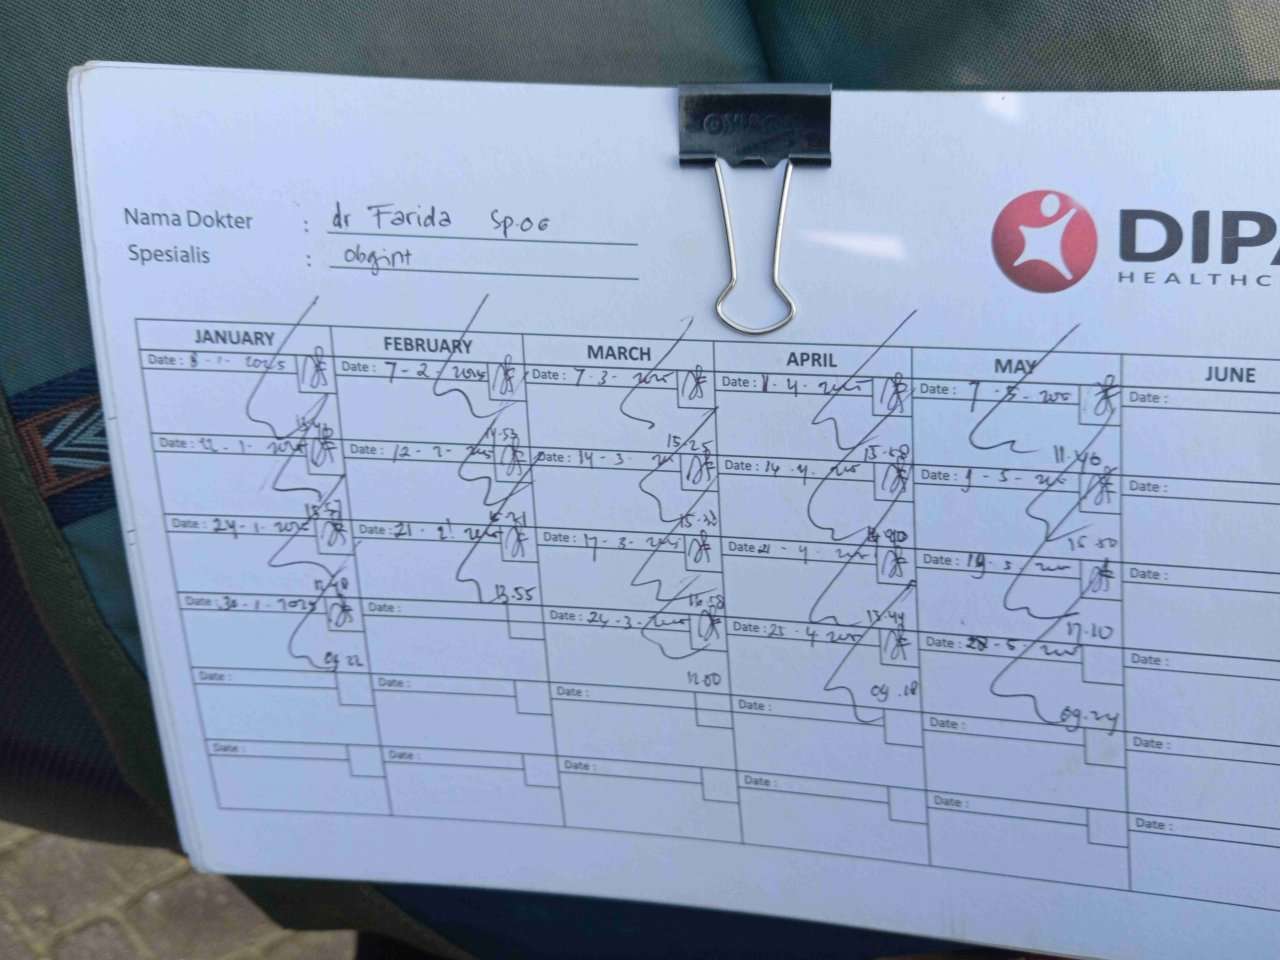 Nama Dokter : dr Farida Sp.OG
Spesialis : Obgint
DIPA
HEALTHC
JANUARY FEBRUARY MARCH APRIL MAY JUNE
Date : 8-1-2025 Date : 7-2-2025 Date : 7-3-2025 Date : Date : 7-5-2025 Date :
14.53 15.25 15.58 11.46
Date : Date : 12-2-2025 Date : 14-3-2025 Date : 14-4-2025 Date : Date :
15.50
Date : 24-1-2025 Date : 21-2-2025 Date : 17-3-2025 Date : 21-4-2025 Date : 19-5-2025 Date :
13.55 16.58 13.44 17.10
Date : 30-1-2025 Date : Date : 24-3-2025 Date : 25-4-2025 Date : Date :
09.22 12.00 09.18 09.24
Date : Date : Date : Date : Date : Date :
Date : Date : Date : Date : Date : Date :